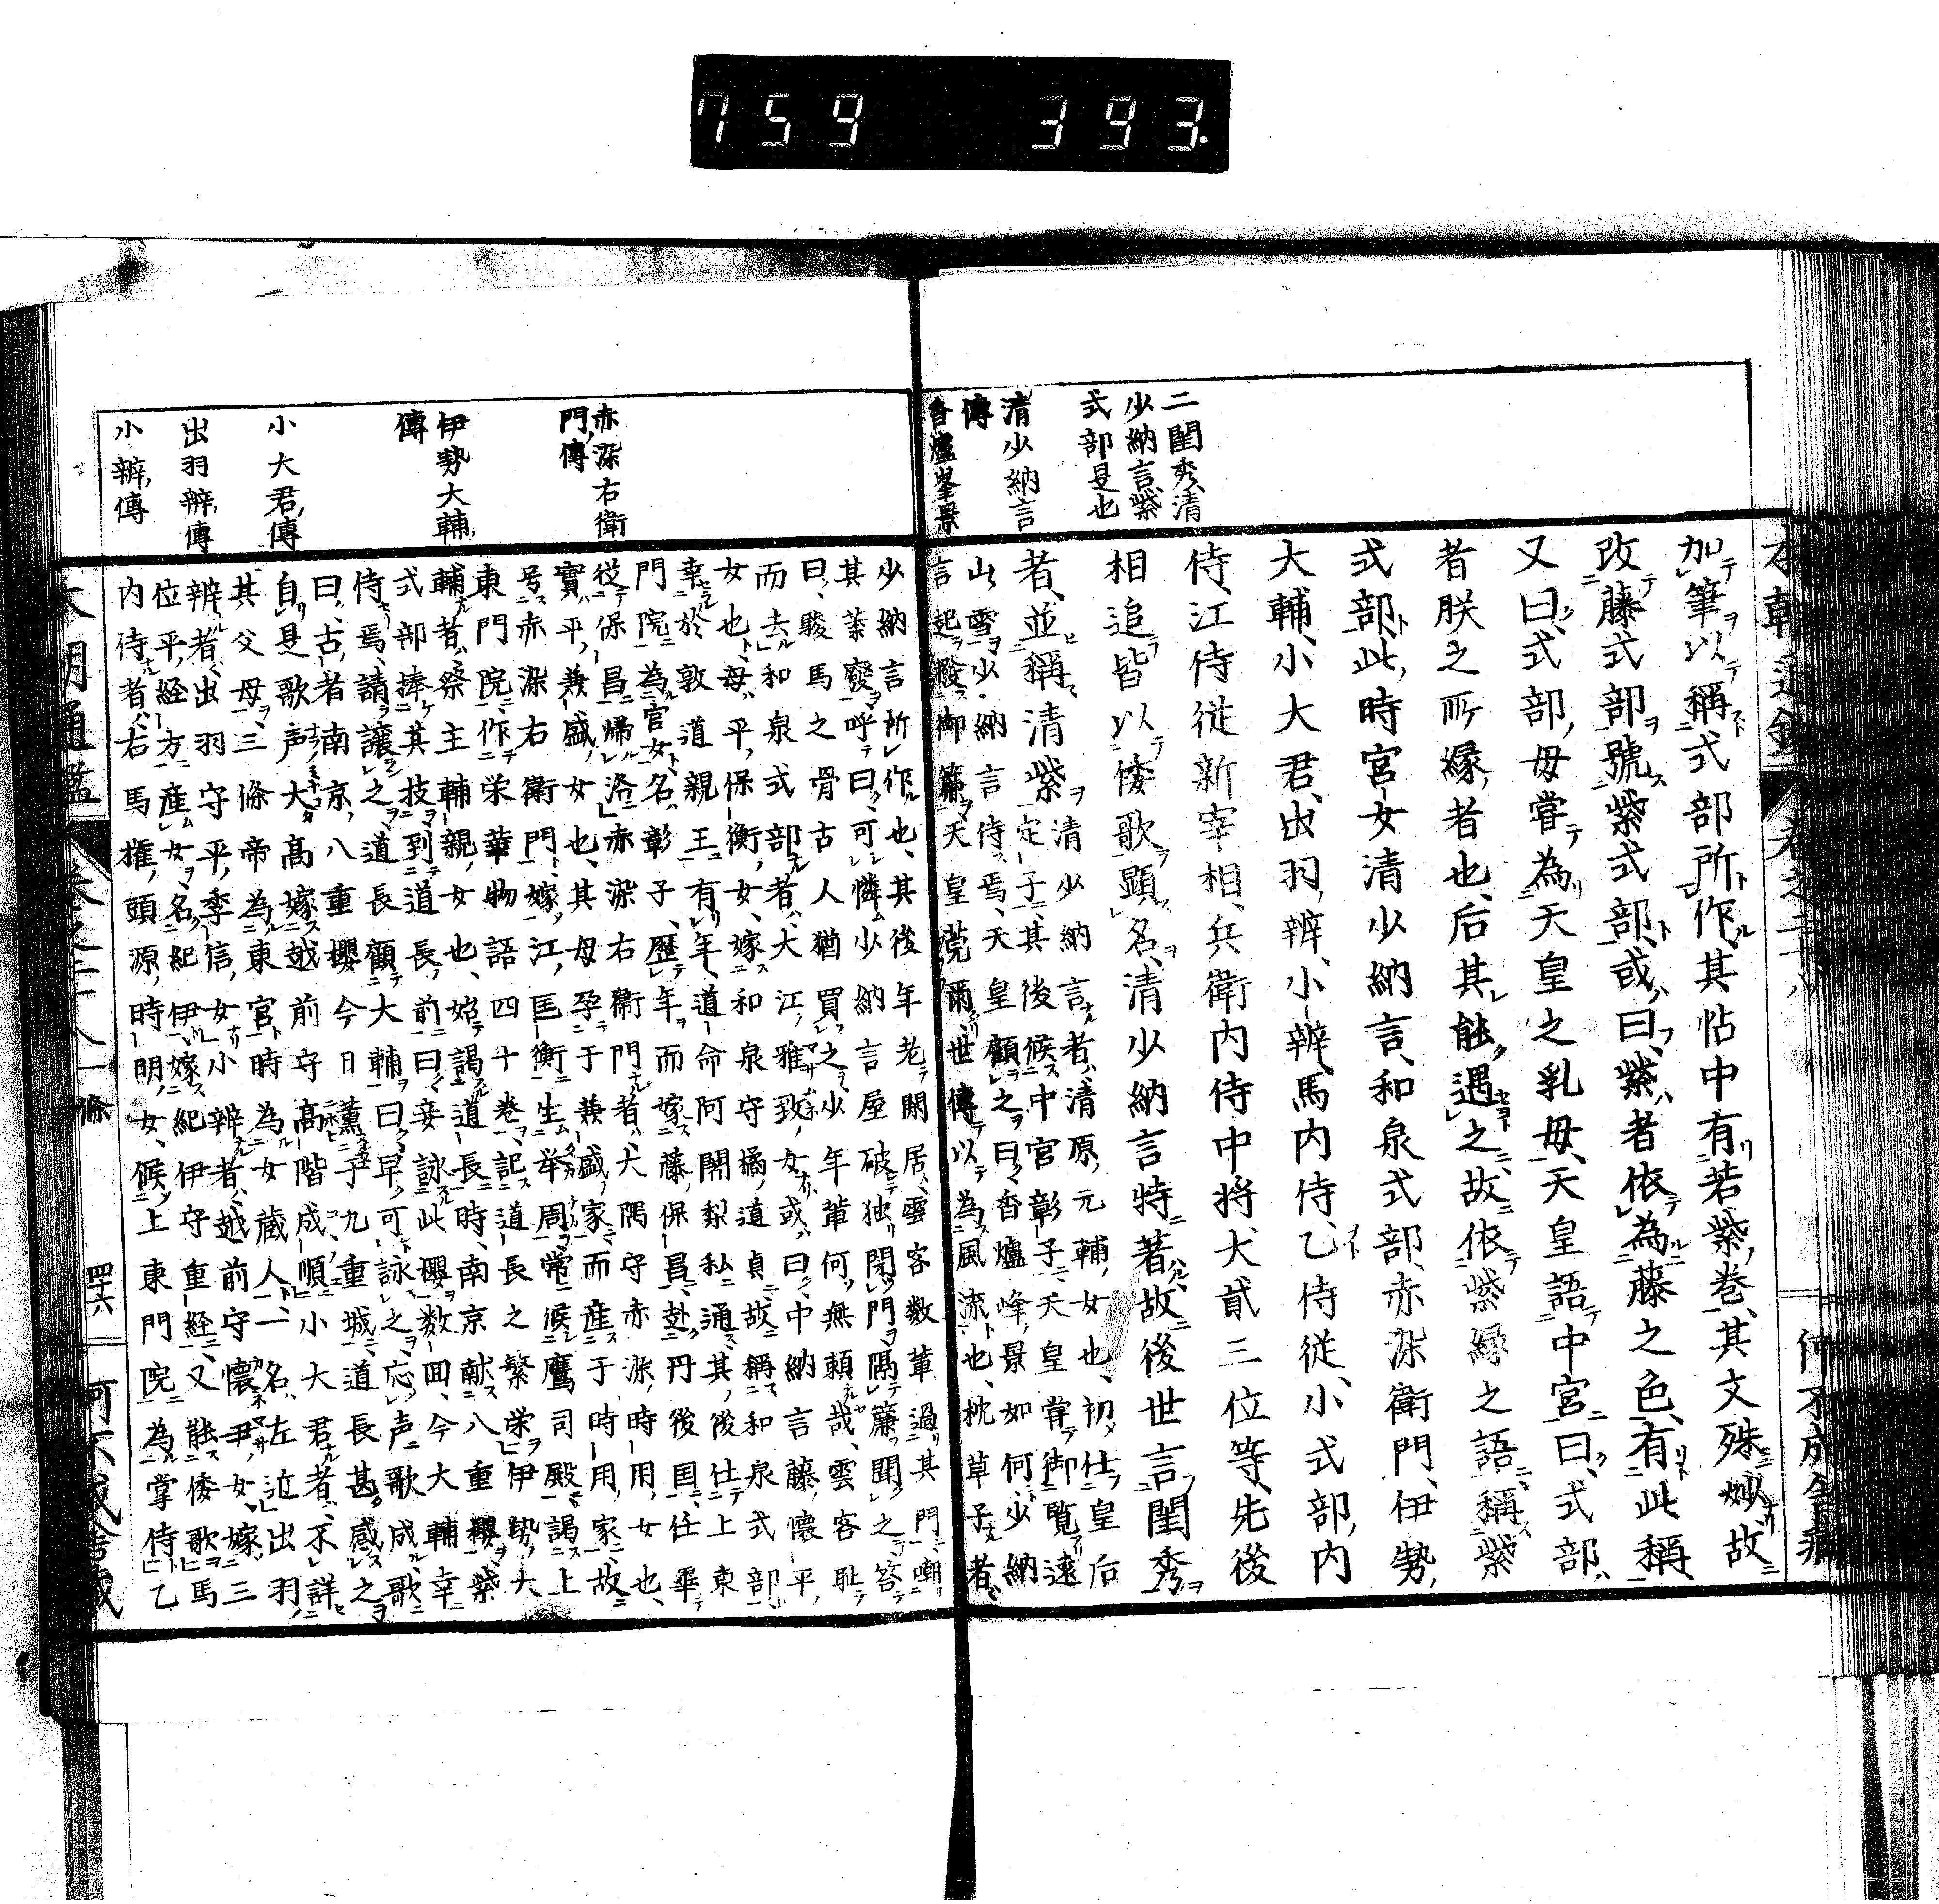 759 393.
二閨秀清
少納言紫
式部是也
清少納言
傳
香爐峯景
本朝通鑑 卷之二十八
加筆以稱式部所作其帖中有若紫卷其文殊妙故
改藤式部號紫式部或曰紫者依為藤之色有此稱
又曰式部母嘗為天皇之乳母天皇語中宮曰式部
者朕之所縁者也后其能遇之故依紫縁之語稱紫
式部此時宮女清少納言和泉式部赤染衛門伊勢
大輔小大君出羽辨小辨馬内侍乙侍從小式部内
侍江侍從新宰相兵衛内侍中将大貳三位等先後
相追皆以倭歌顯名清少納言特著故後世言閨秀
者並稱清紫
清少納言者清原元輔女也初仕皇后
定子其後候中宮彰子天皇嘗御覧遠
山雪少納言侍焉天皇顧之曰香爐峰景如何少納
言起撥御簾天皇莞爾世傳以為風流也枕草子者
赤染右衛
門傳
伊勢大輔
傳
小大君傳
出羽辨傳
小辨傳
少納言所作也其後年老閑居雲客数輩過其門嘲
其業廢呼曰可憐少納言屋破独閉門隔簾聞之答
曰駿馬之骨古人猶買之少年輩何無頼哉雲客耻
而去和泉式部者大江雅致女或曰中納言藤懐平
女也母平保衡女嫁和泉守橘道貞故稱和泉式部
幸於敦道親王有年道命阿闍梨私通其後仕上東
門院為官女名彰子歴年而嫁藤保昌赴丹後国任畢
從保昌帰洛赤染右衛門者大隅守赤染時用女也
實平兼盛女也其母孕于兼盛家而産于時用家故
号赤染右衛門嫁江匡衡生挙周常候鷹司殿謁上
東門院作栄華物語四十卷記道長之繁栄伊勢大
輔者祭主輔親女也始謁道長時南京献八重櫻紫
式部捧其技到道長前曰妾詠此櫻数回今大輔幸
侍焉請譲之道長顧大輔曰早可詠之応声歌成歌
曰古者南京八重櫻今日薫于九重城道長甚感之
自是歌声大高嫁越前守高階成順小大君者不詳
其父母三條帝為東宮時為女蔵人一名左近出羽
辨者出羽守平季信女小辨者越前守懐尹女嫁三
位平経方産女名紀伊嫁紀伊守重経又能倭歌馬
内侍者右馬権頭源時明女候上東門院為掌侍乙
本朝通鑑 卷之二十八 一條 四十六